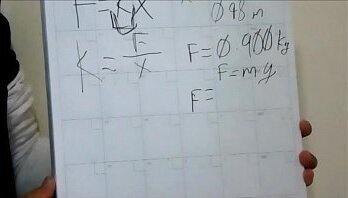 F=KX
098 m
K = F/X
F=0.900Kg
F=m.g
F=